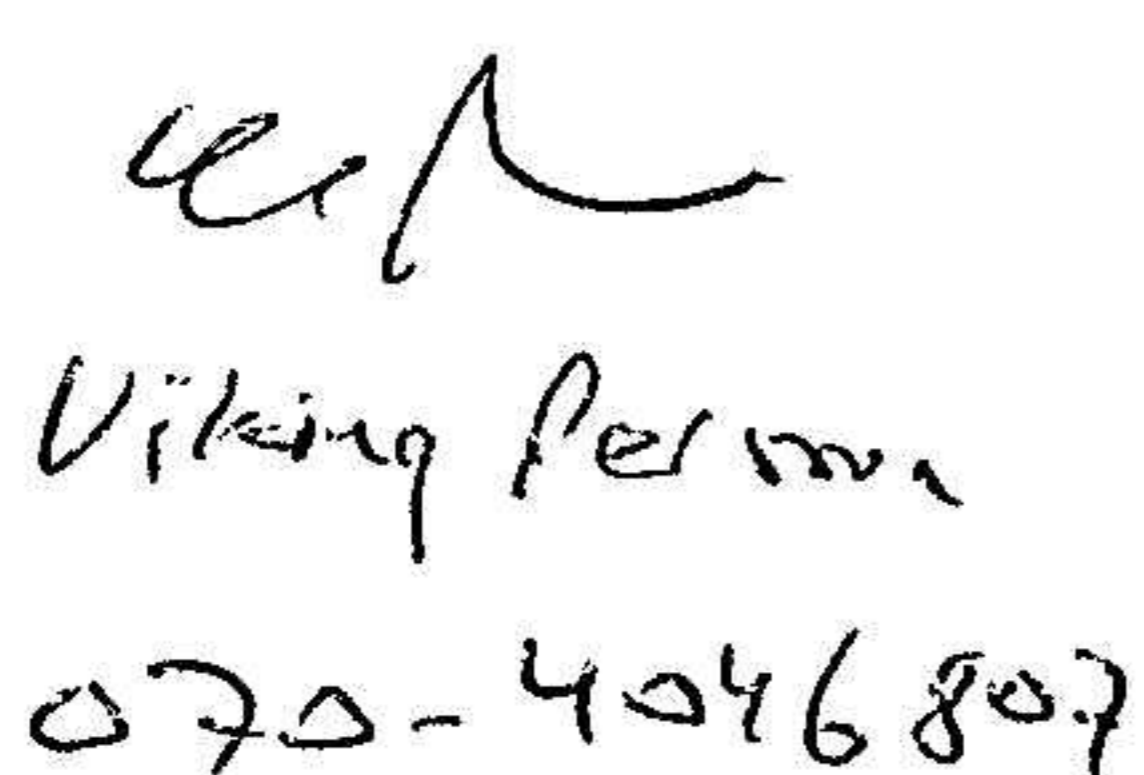 Viking Persson
070-4046807